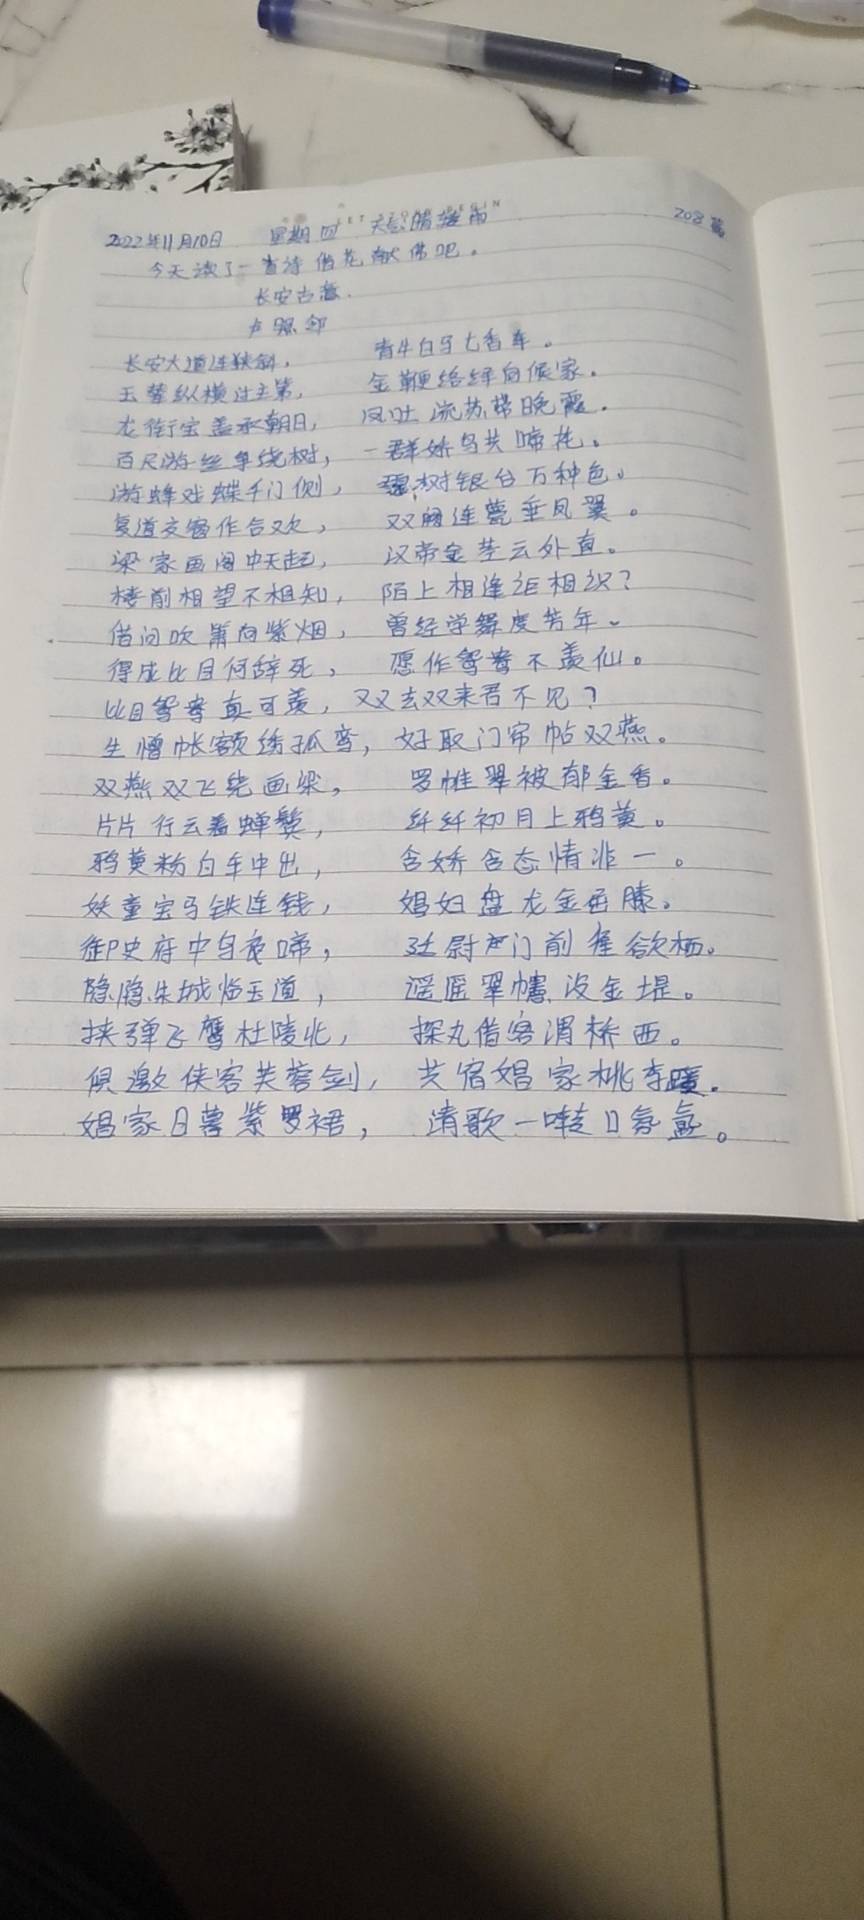 2022年11月10日 星期四 天气晴转雨 208篇
今天读了一首诗借花献佛吧。
长安古意.
卢照邻
长安大道连狭斜， 青牛白马七香车。
玉辇纵横过主第， 金鞭络绎向侯家。
龙衔宝盖承朝日， 凤吐流苏带晚霞。
百尺游丝争绕树， 一群娇鸟共啼花。
游蜂戏蝶千门侧， 碧树银台万种色。
复道交窗作合欢， 双阙连甍垂凤翼。
梁家画阁中天起， 汉帝金茎云外直。
楼前相望不相知， 陌上相逢讵相识？
借问吹箫向紫烟， 曾经学舞度芳年。
得成比目何辞死， 愿作鸳鸯不羡仙。
比目鸳鸯真可羡， 双去双来君不见？
生憎帐额绣孤鸾， 好取门帘帖双燕。
双燕双飞绕画梁， 罗帷翠被郁金香。
片片行云着蝉鬓， 纤纤初月上鸦黄。
鸦黄粉白车中出， 含娇含态情非一。
妖童宝马铁连钱， 娼妇盘龙金屈膝。
御史府中乌夜啼， 廷尉门前雀欲栖。
隐隐朱城临玉道， 遥遥翠幰没金堤。
挟弹飞鹰杜陵北， 探丸借客渭桥西。
俱邀侠客芙蓉剑， 共宿娼家桃李蹊.
娼家日暮紫罗裙， 清歌一啭口氛氲。